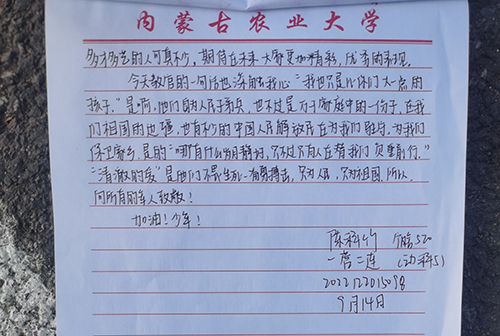 内蒙古农业大学
多才多艺的人可真不少,期待在未来大家更加精彩,优秀的表现。
今天教官的一句话也深触我心“我也只是比你们大一点的
孩子。”是啊,他们身为人民子弟兵,也不过是万千家庭中的一份子,在我
们祖国的边疆,也有不少的中国人民解放军在为我们驻守,为我们
保卫家乡,是的“哪有什么岁月静好,只不过有人在替我们负重前行。”
“清澈的爱”是他们不畏生死,只为人民,只为祖国,所以,
向所有的军人致敬!
加油!少年!
陈科竹
一营二连 (动科5)
202212201509
9月14日